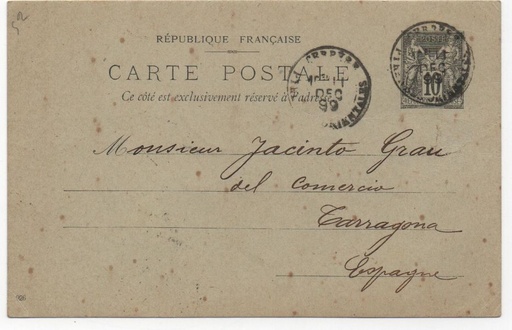 RÉPUBLIQUE FRANÇAISE
CARTE POSTALE
Ce côté est exclusivement réservé à l'adresse
DEC
10
Monsieur Jacinto Grau
del Comercio
Tarragona
Espagne